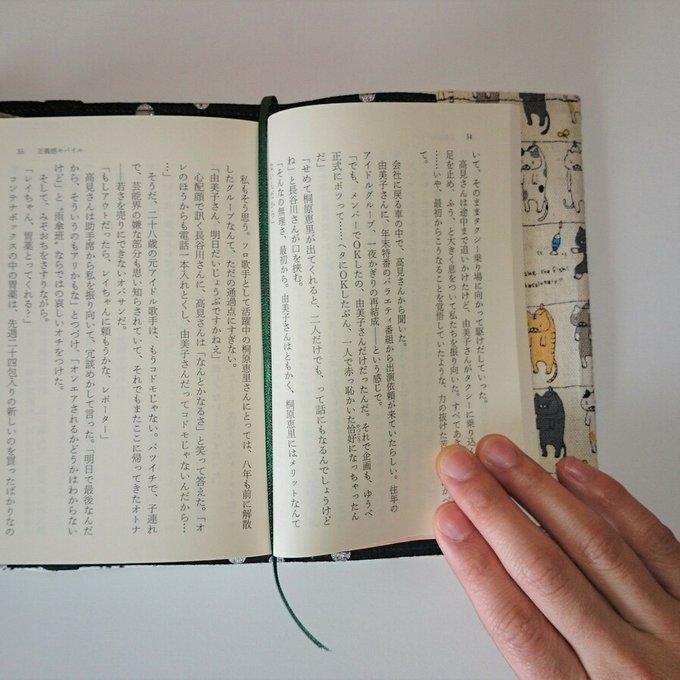 54
いて、そのままタクシー乗り場に向かって駆けだしていった。
高見さんは途中まで追いかけたけど、由美子さんがタクシーに乗り込
足を止め、ふう、と大きく息をついて私たちを振り向いた。すべてあ
……いや、最初からこうなることを覚悟していたような、力の抜けた
て。
会社に戻る車の中で、高見さんから聞いた。
由美子さんに、年末特番のバラエティ番組から出演依頼が来ていたらしい。往年の
アイドルグループ、一夜かぎりの再結成――という感じで。
「でも、メンバーでOKしたの、由美子さんだけだったんだ。それで企画も、ゆうべ
正式にボツって……ヘタにOKしたぶん、一人で赤っ恥かいた恰好になっちゃったん
だ」
「せめて桐原恵里が出てくれると、二人だけでも、って話にもなるんでしょうけど
ね」と長谷川さんが口を挟む。
「そんなの無理さ、最初から。由美子さんはともかく、桐原恵里にはメリットなんて
55 正義感モバイル
私もそう思う。ソロ歌手として活躍中の桐原恵里さんにとっては、八年も前に解散
したグループなんて、ただの通過点にすぎない。
「由美子さん、明日だいじょうぶですかねえ」
心配顔で訊く長谷川さんに、高見さんは「なんとかなるさ」と笑って答えた。「オ
レのほうからも電話一本入れとくし、由美子さんだってコドモじゃないんだから…
…」
そうだ、二十八歳の元アイドル歌手は、もうコドモじゃない。バツイチで、子連れ
で、芸能界の嫌な部分も思い知らされていて、それでもまたここに帰ってきたオトナ
――若さを売りにできないオバサンだ。
「もしアウトだったら、レイちゃんに頼もうかな、レポーター」
高見さんは助手席から私を振り向いて、冗談めかして言った。「明日で最後なんだ
から、そういうのもアリかもな」とつづけ、「オンエアされるかどうかはわからない
けど」と"雨傘班"ならではの哀しいオチをつけた。
そして、みぞおちをさすりながら。
「レイちゃん、胃薬とってくれる？」
コンテナボックスの中の胃薬は、先週二十四包入りの新しいのを買ったばかりなの